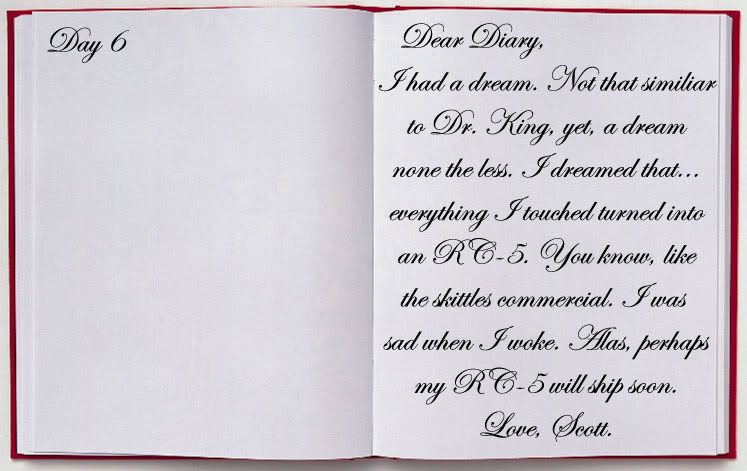 Day 6
Dear Diary,
I had a dream. Not that similiar
to Dr. King, yet, a dream
none the less. I dreamed that...
everything I touched turned into
an RC-5. You know, like
the skittles commercial. I was
sad when I woke. Alas, perhaps
my RC-5 will ship soon.
Love, Scott.